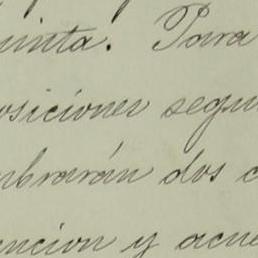 uinta. Para
osiciones segu
mbrarán dos c
encion y acue